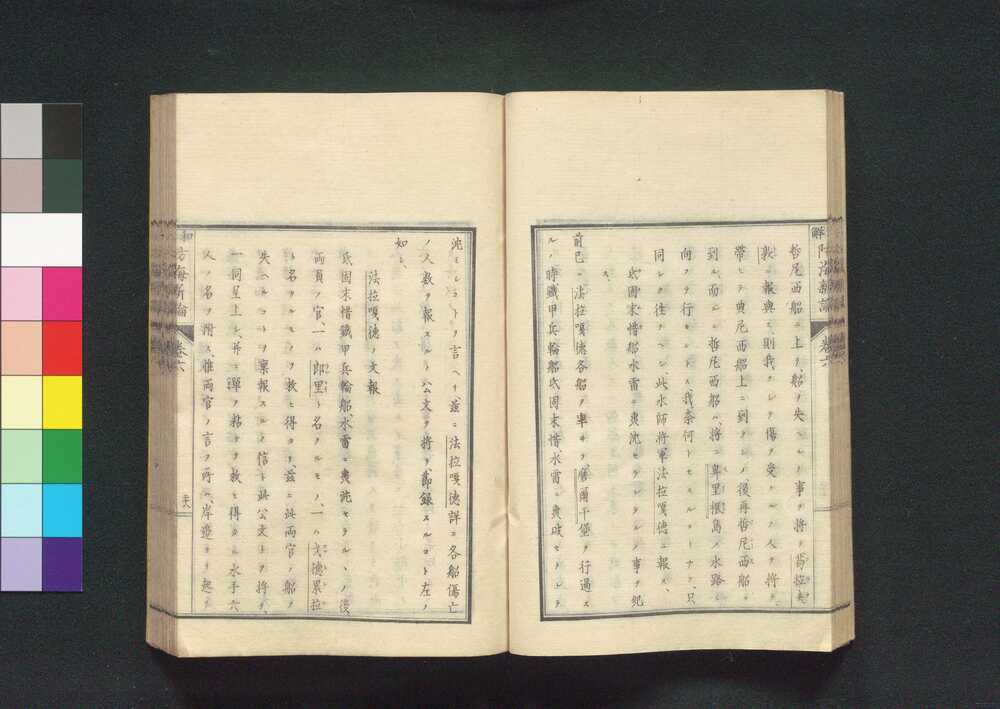 哲尼西船ニ上ラ、船ヲ失ヘルノ事ヲ將テ
敦ニ報與ス、則我クシテ傷ヲ受ケルノ人ヲ將テ
帶ヒテ典尼西船上ニ到ラシメ、後再哲尼西船ニ
到ル、而シテ哲尼西船ハ、將ニ卑里懼島ノ水路ニ
向ヲテ行セントス、我奈何トモスルコトナク、只
同シク往クベシ、此水師將軍法拉嘎德ニ報ス、
氐固末惜船水雷ニ轟沈セラレタルノ事ヲ紀
ス、
前已ニ法拉嘎德各船ヲ率ヰテ磨爾干堡ヲ行過ス
ルノ時鐵甲兵輪船氐固末惜、水雷ニ轟破セラレテ
沈ミシコトヲ言ヘリ、茲ニ法拉嘎德詳ニ各船傷亡
ノ人數ヲ報スルノ公文ヲ將テ節録スルコト左ノ
如シ、
法拉嘎德ノ文報
氐固末惜鐵甲兵輪船、水雷ニ轟沈セラル、ノ後
兩員ノ官、一ハ郎里ト名クルモノ、一ハ戈德累拉
ト名クルモノヲ救ヒ得タリ、茲ニ此兩官ノ船ヲ
失ヘルコトヲ稟報スルノ信ト此公文トヲ將テ、
一同呈上シ、并ニ單ヲ粘シテ救ヒ得タル水手六
人ノ名ヲ附ス、推兩官ノ言フ所ハ、岸邊ヨリ起ル
防海新論
卷六
防海新論
卷六